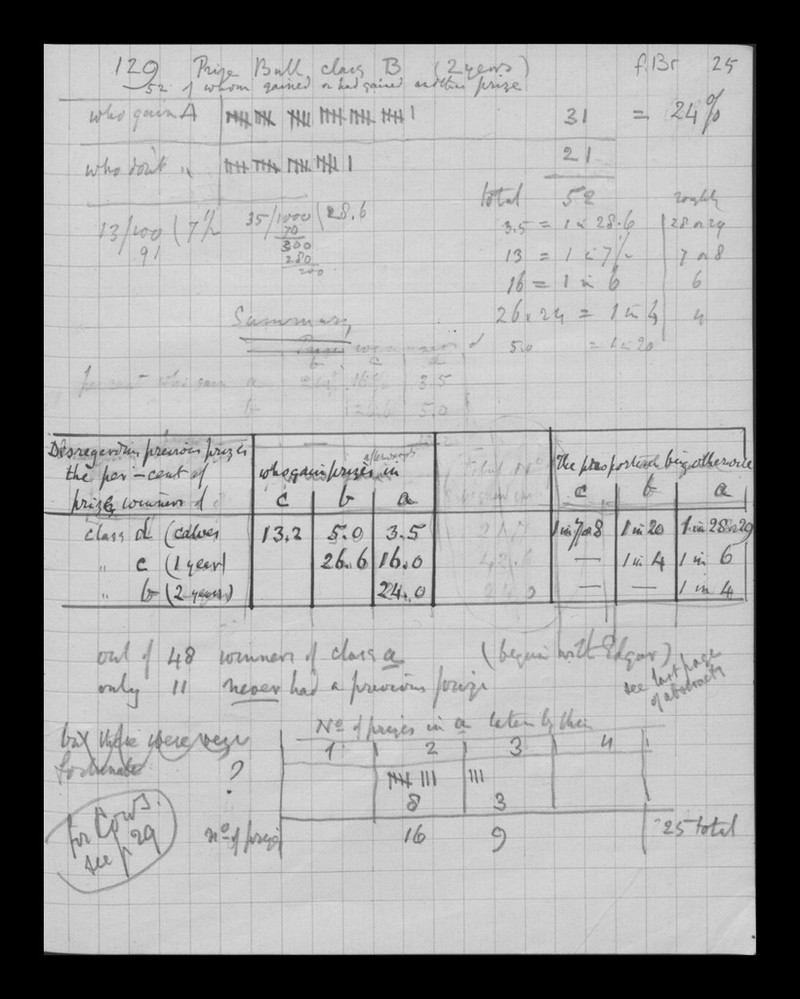 129 Prize Bull class B (2 years) f.Br 25
52 of whom gained or had gained another prize
who gain A 31 = 24%
who don't " 21
total 52
roughly
13/100 ( 7 1/2
91
35/1000 ( 28.6
70
300
280
200
3.5 = 1 in 28.6 28 or 29
13 = 1 in 7 7 or 8
16 = 1 in 6 6
26.24 = 1 in 4 4
5.0 = 1 in 20
Summary
b c d
per cent who gain a 3.5
5.0
Disregarding previous prizes who gain prizes in afterwards The proportion being otherwise
the per-cent of
prize winners of c b a c b a
class d (calves 13.2 5.0 3.5 1 in 7 or 8 1 in 20 1 in 28 or 29
" c (1 year) 26.6 16.0 — 1 in 4 1 in 6
" b (2 years) 24.0 — — 1 in 4
out of 48 winners of class a (begin with Edgar)
only 11 never had a previous prize see last page
of abstracts
but these were very
fortunate ?
No of prizes in a taken by them
1 2 3 4
8 3
no of prizes 16 9 25 total
for Cows.
see p 29